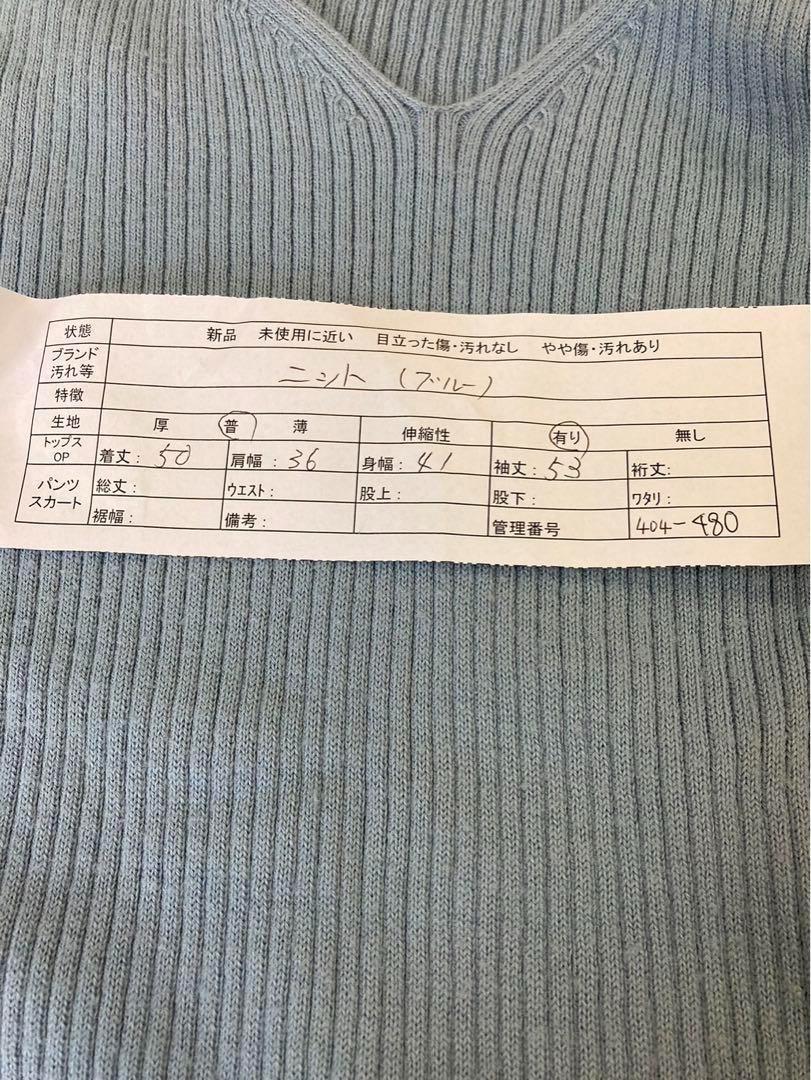 状態 新品 未使用に近い 目立った傷・汚れなし やや傷・汚れあり
ブランド
汚れ等 ニット (ブルー)
特徴
生地 厚 普 薄 伸縮性 有り 無し
トップス
OP 着丈: 50 肩幅: 36 身幅: 41 袖丈: 53 裄丈:
パンツ
スカート 総丈: ウエスト: 股上: 股下: ワタリ:
裾幅: 備考: 管理番号 404-480